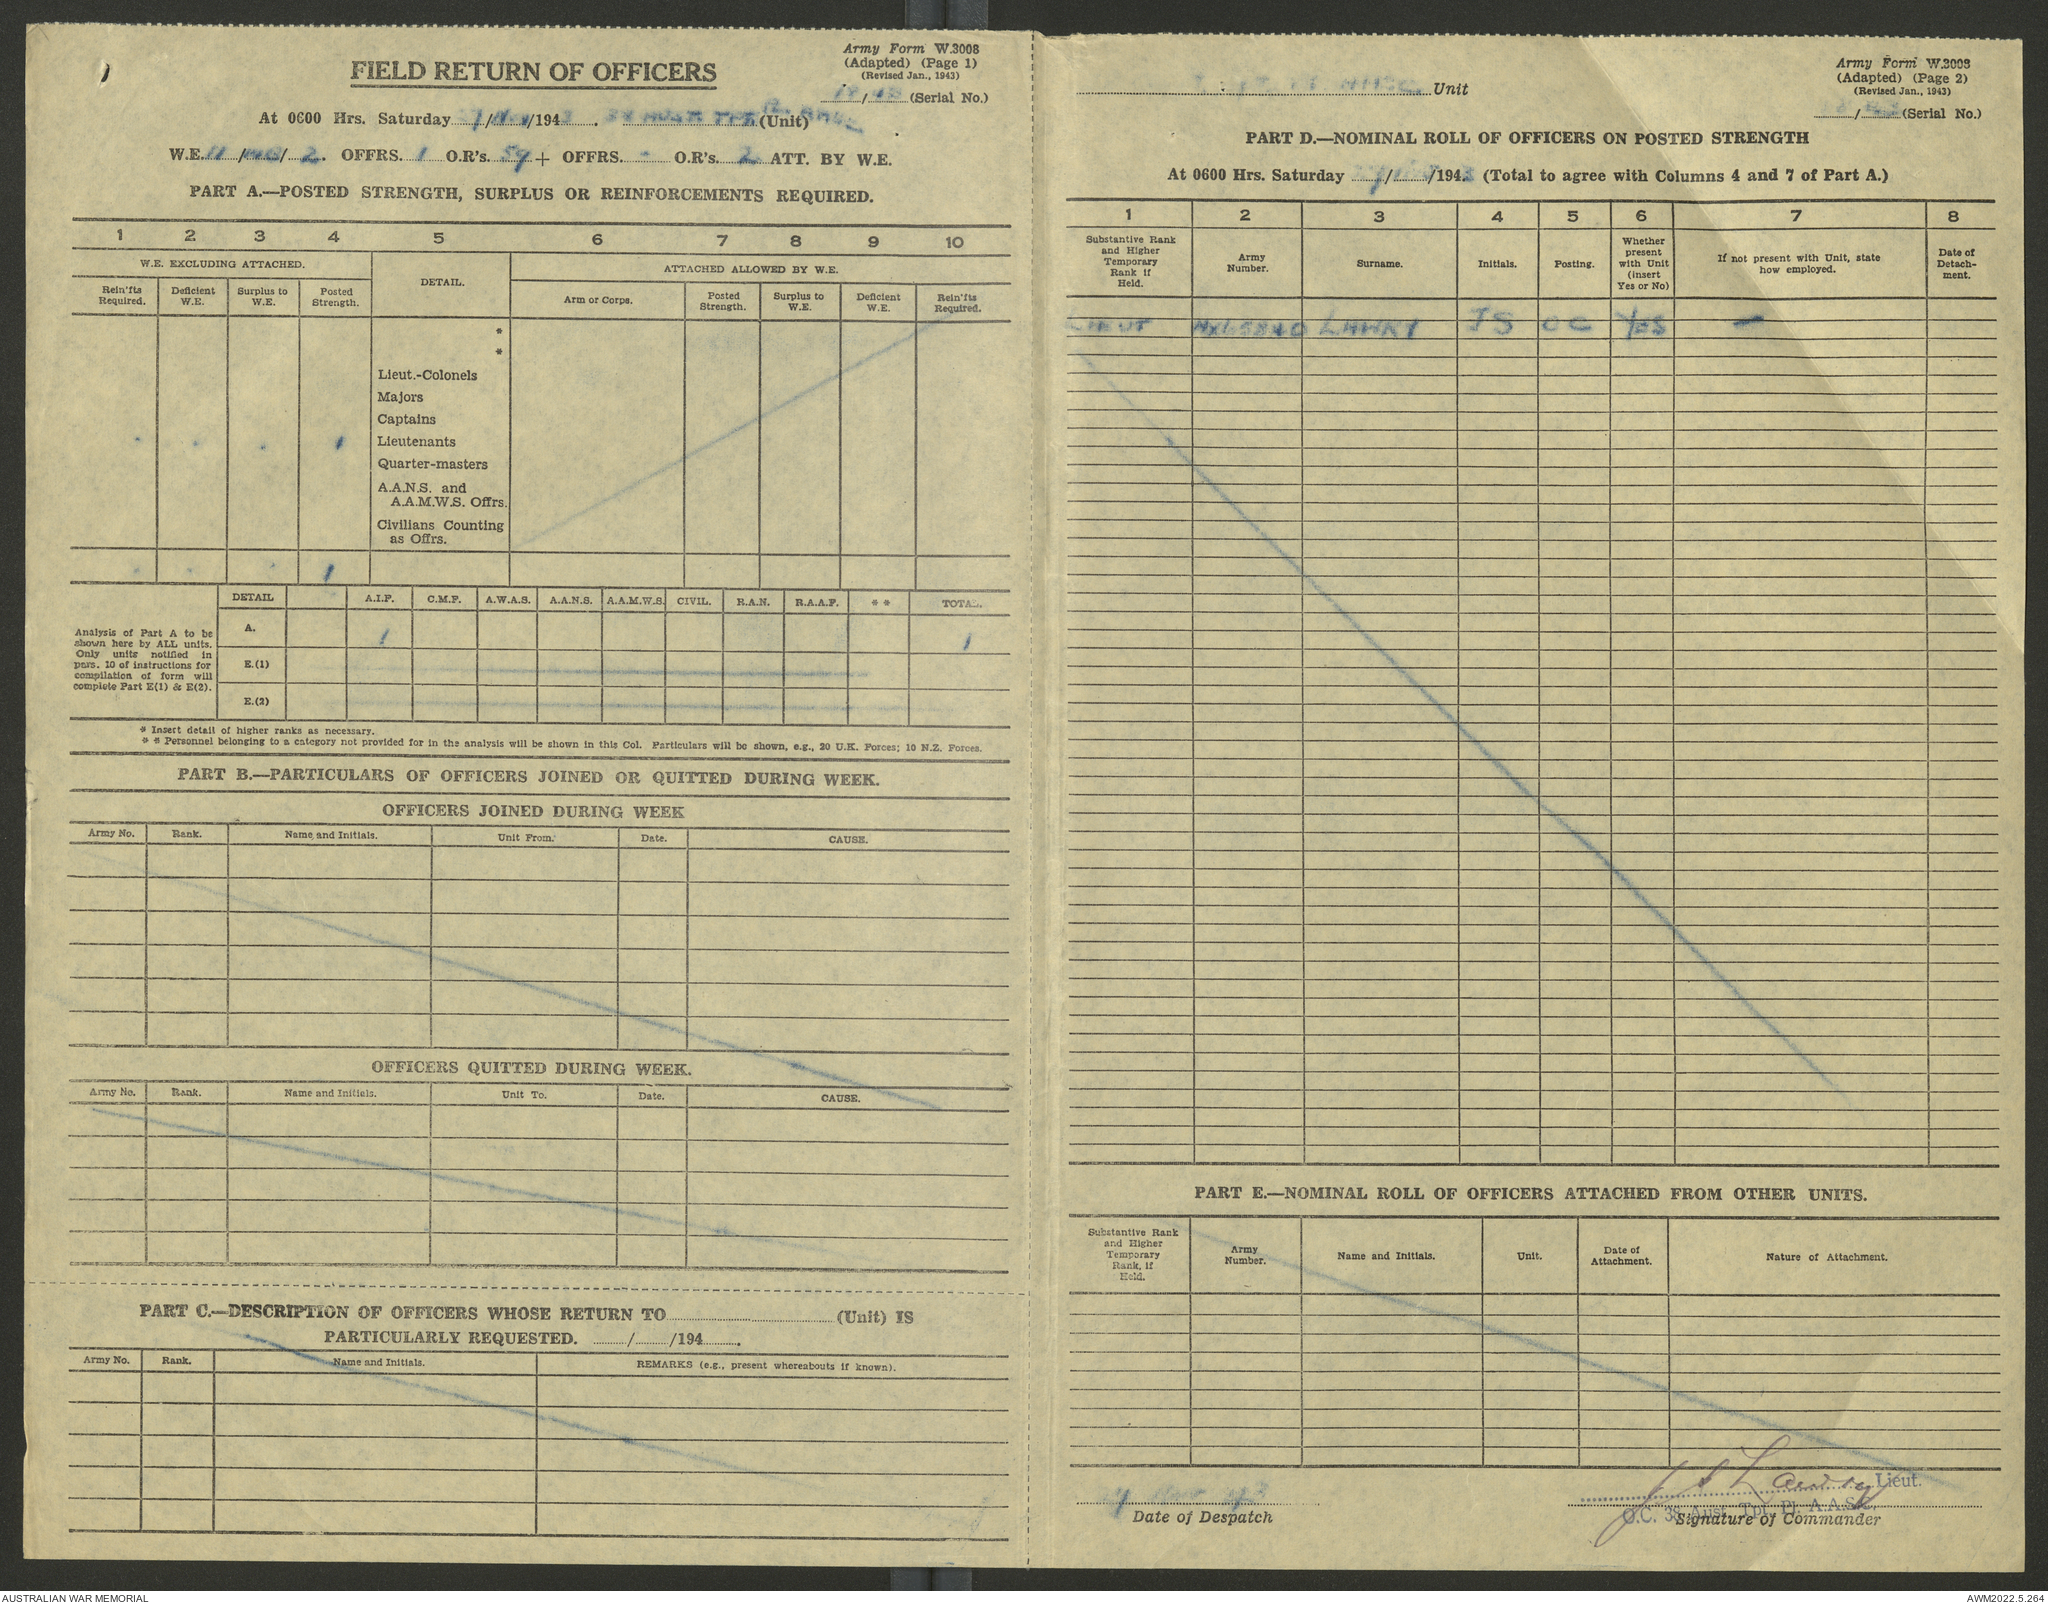 Army Form W.3008
(Adapted) (Page 1)
(Revised Jan., 1943)
FIELD RETURN OF OFFICERS
/ (Serial No.)
At 0600 Hrs. Saturday / /194 . (Unit)
W.E. 11 / / 2. OFFRS. 1 O.R's. 59 + OFFRS. - O.R's. 2 ATT. BY W.E.
PART A.—POSTED STRENGTH, SURPLUS OR REINFORCEMENTS REQUIRED.
1 2 3 4 5 6 7 8 9 10
W.E. EXCLUDING ATTACHED. DETAIL. ATTACHED ALLOWED BY W.E.
Rein'fts Required. Deficient W.E. Surplus to W.E. Posted Strength. Arm or Corps. Posted Strength. Surplus to W.E. Deficient W.E. Rein'fts Required.
*
*
Lieut.-Colonels
Majors
Captains
. . . 1 Lieutenants
Quarter-masters
A.A.N.S. and
A.A.M.W.S. Offrs.
Civilians Counting
as Offrs.
. . . 1
DETAIL A.I.F. C.M.F. A.W.A.S. A.A.N.S. A.A.M.W.S. CIVIL. R.A.N. R.A.A.F. * * TOTAL.
A. 1 1
E.(1)
E.(2)
Analysis of Part A to be
shown here by ALL units.
Only units notified in
para. 10 of instructions for
compilation of form will
complete Part E(1) & E(2).
* Insert detail of higher ranks as necessary.
* * Personnel belonging to a category not provided for in the analysis will be shown in this Col. Particulars will be shown, e.g., 20 U.K. Forces; 10 N.Z. Forces.
PART B.—PARTICULARS OF OFFICERS JOINED OR QUITTED DURING WEEK.
OFFICERS JOINED DURING WEEK
Army No. Rank. Name and Initials. Unit From. Date. CAUSE.
OFFICERS QUITTED DURING WEEK.
Army No. Rank. Name and Initials. Unit To. Date. CAUSE.
PART C.—DESCRIPTION OF OFFICERS WHOSE RETURN TO (Unit) IS
PARTICULARLY REQUESTED. / /194 .
Army No. Rank. Name and Initials. REMARKS (e.g., present whereabouts if known).
Army Form W.3008
(Adapted) (Page 2)
(Revised Jan., 1943)
Unit
/ (Serial No.)
PART D.—NOMINAL ROLL OF OFFICERS ON POSTED STRENGTH
At 0600 Hrs. Saturday / /194 3 (Total to agree with Columns 4 and 7 of Part A.)
1 2 3 4 5 6 7 8
Substantive Rank and Higher Temporary Rank if Held. Army Number. Surname. Initials. Posting. Whether present with Unit (insert Yes or No) If not present with Unit, state how employed. Date of Detach-ment.
LIEUT LAWRY JS OC YES —
PART E.—NOMINAL ROLL OF OFFICERS ATTACHED FROM OTHER UNITS.
Substantive Rank and Higher Temporary Rank, if Held. Army Number. Name and Initials. Unit. Date of Attachment. Nature of Attachment.
J S Lawry Lieut.
O.C. 38 Aust. Tpt. Pl. A.A.S.C.
Date of Despatch Signature of Commander
AUSTRALIAN WAR MEMORIAL AWM2022.5.264